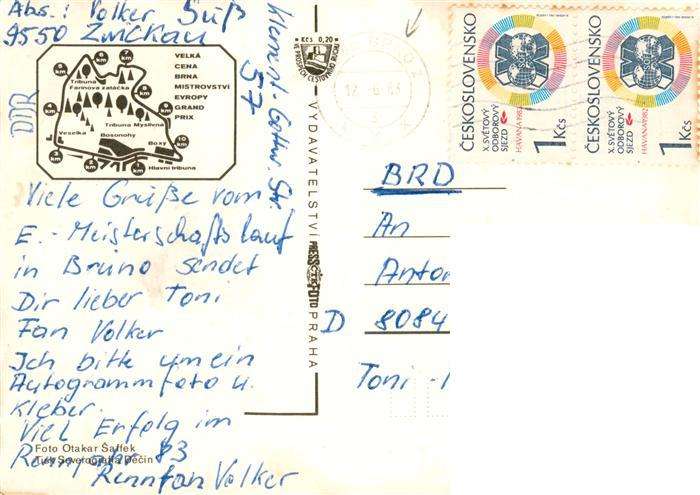 Abs.: Volker Süß
9550 Zwickau
DDR
57
VELKÁ
CENA
BRNA
MISTROVSTVÍ
EVROPY
GRAND
PRIX
Tribuna
Farinova zatáčka
Tribuna Myslivna
Veselka
Bosonohy
Boxy
Hlavní tribuna
Viele Grüße vom
E.-Meisterschaftslauf
in Bruno sendet
Dir lieber Toni
Fan Volker
Ich bitte um ein
Autogrammfoto u.
Kleber.
Viel Erfolg im
Rennjahr 83
Rennfan Volker
Foto Otakar Šaffek
Tisk Severografia Děčín
Kčs 0,20
VE PROSPĚCH ČESTOVNÍHO RUCHU
VYDAVATELSTVÍ
PRESSFOTO
PRAHA
ČESKOSLOVENSKO
X. SVĚTOVÝ
ODBOROVÝ
SJEZD
HAVANA 1982
1 Kčs
ČESKOSLOVENSKO
X. SVĚTOVÝ
ODBOROVÝ
SJEZD
HAVANA 1982
1 Kčs
BRD
An
Anton
D 8084
Toni -